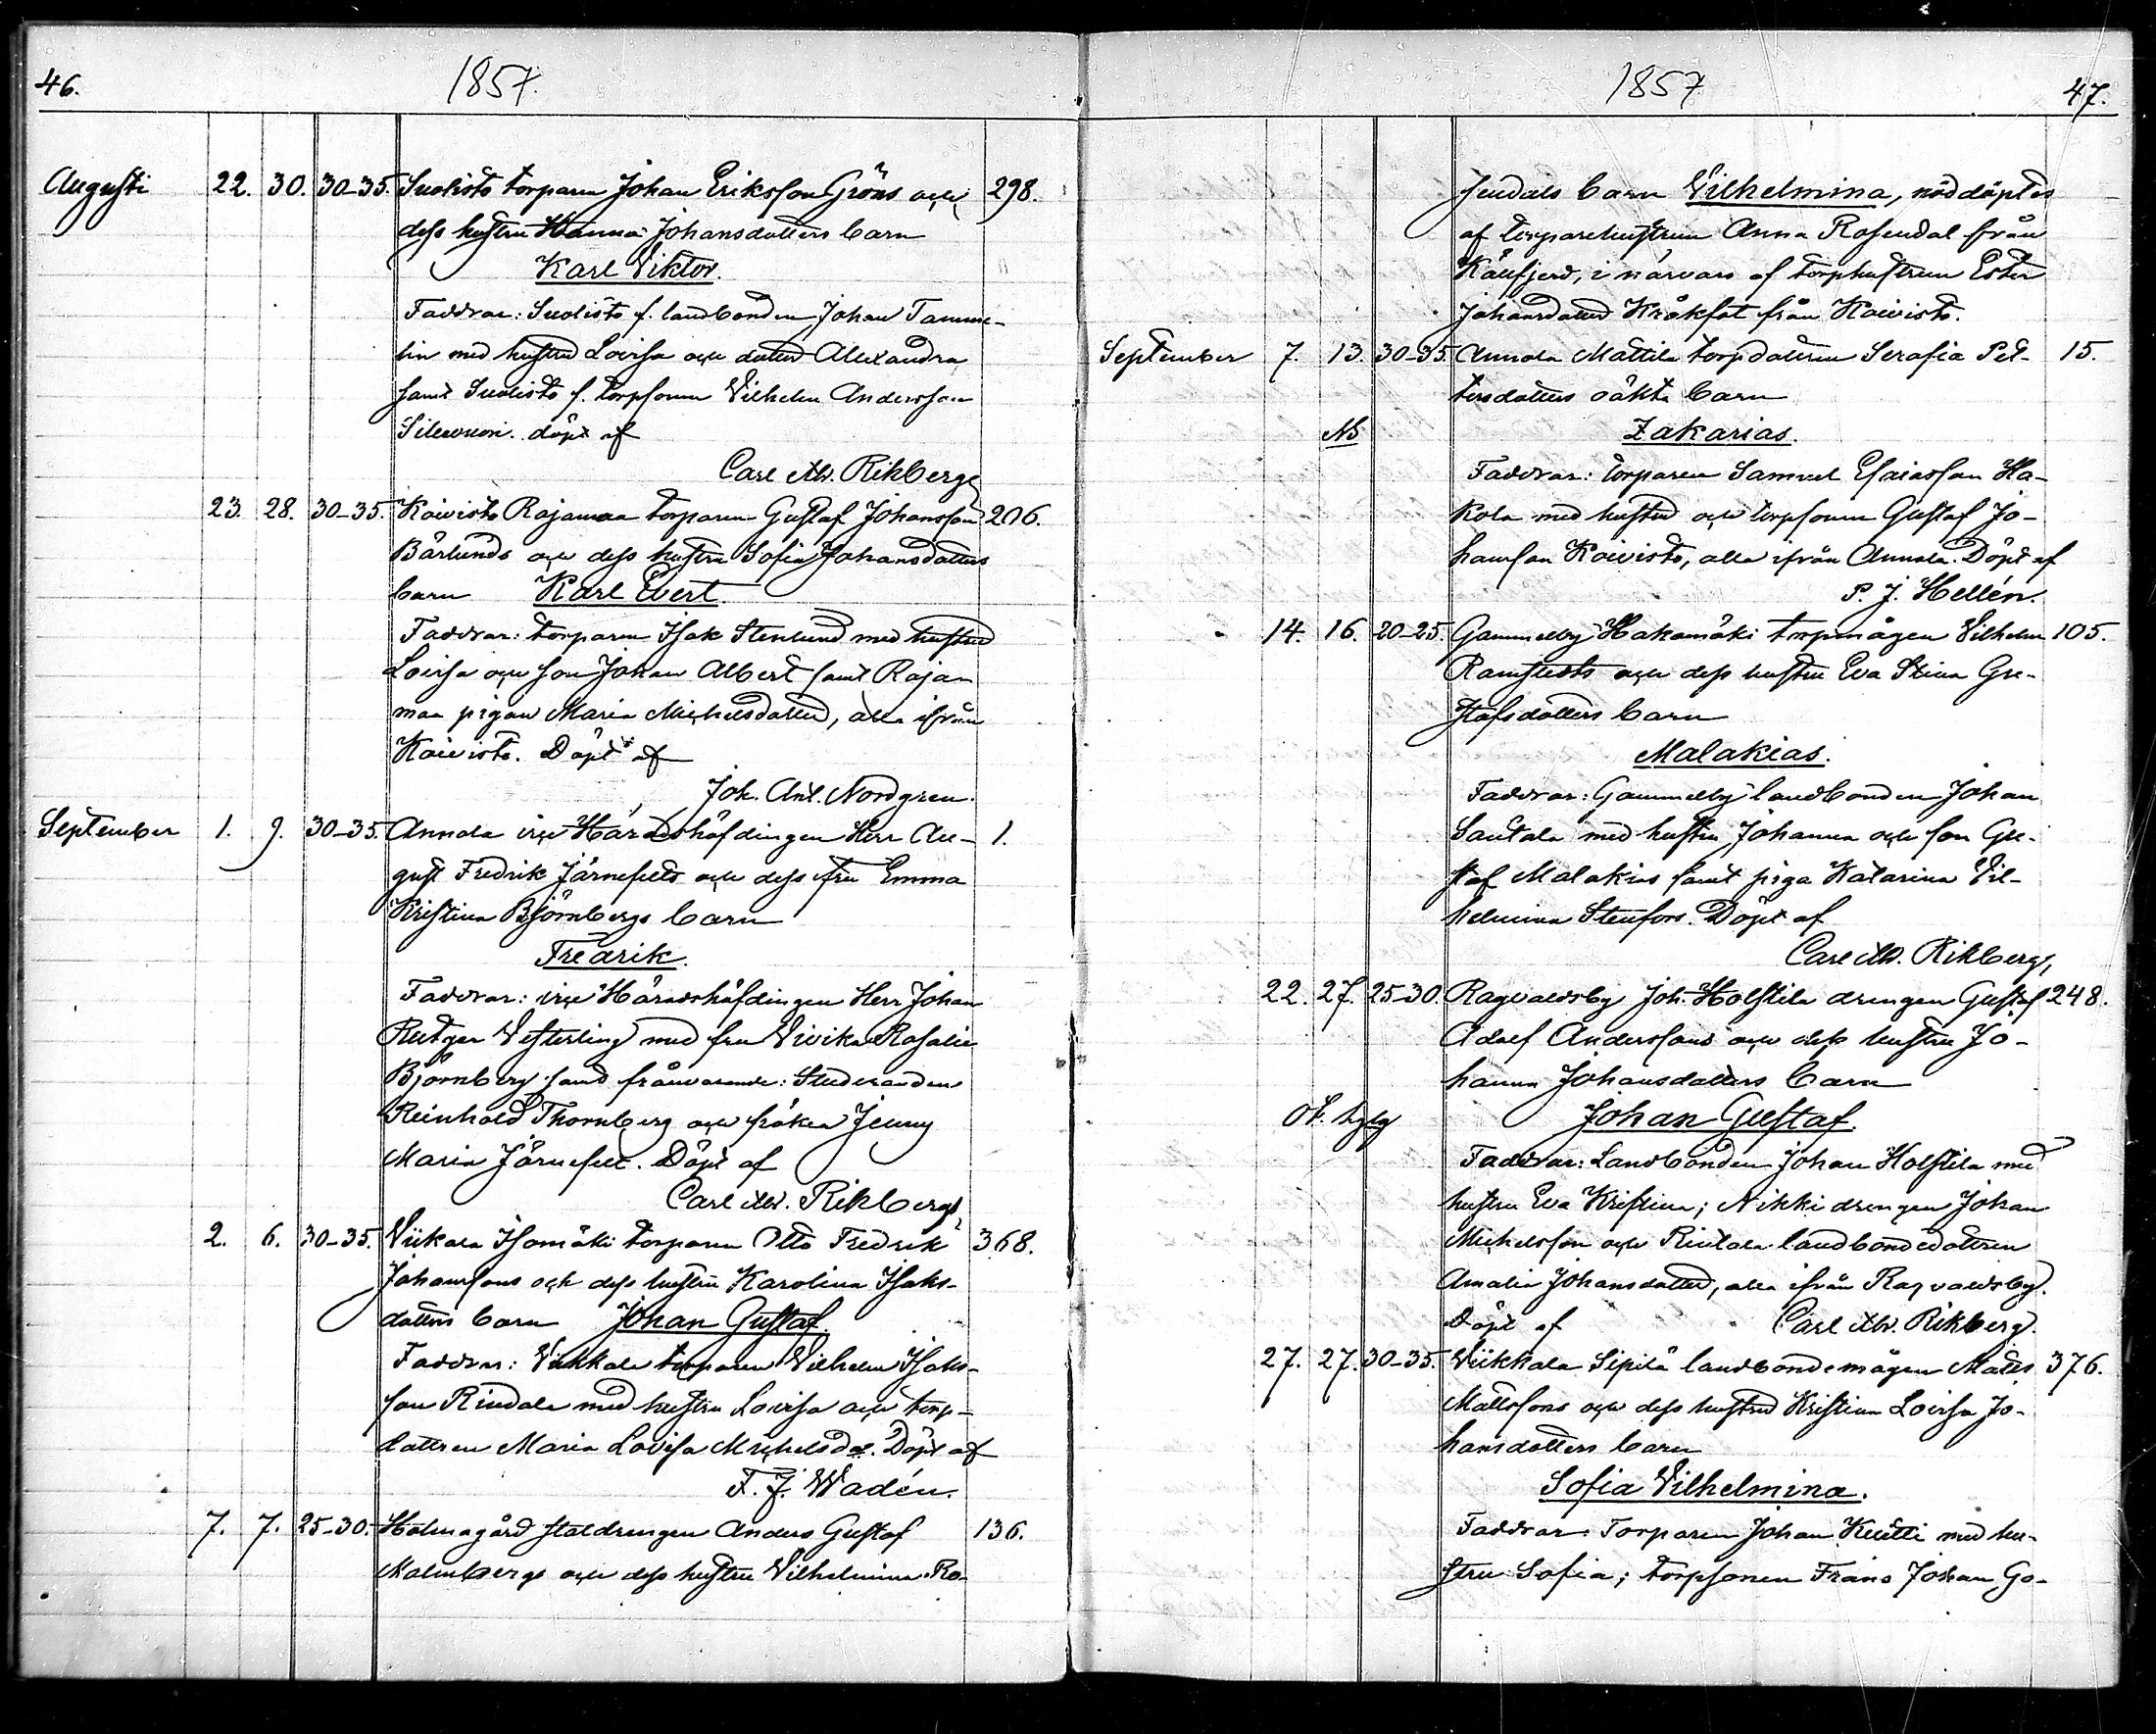 46.
1857.
Augusti 22. 30. 30-35. Suolisto torparen Johan Eriksson Gröns och 298.
dess hustru Hanna Johansdotters barn
Karl Viktor.
Faddrar: Suolisto f. landbonden Johan Tamme-
lin med hustru Lovisa och dotter Alexandra
samt Suolisto f. torpsonen Vilhelm Andersson
döpt af
Carl Alb. Rikberg
23. 28. 30-35. Koivisto Rajamaa torparen Gustaf Johansson 206.
Bärlunds och dess hustru Sofia Johansdotters
barn Karl Evert.
Faddrar: torparen Isak Stenlund med hustru
Lovisa och son Johan Albert samt Raja-
maa pigan Maria Michelsdotter, alla ifrån
Koivisto. Döpt af
Joh. Ant. Nordgren.
September 1. 9. 30-35. Annola vice Häradshöfdingen Herr Au- 1.
gust Fredrik Järnefelts och dess fru Emma
Kristina Björnbergs barn
Fredrik.
Faddrar: vice Häradshöfdingen Herr Johan
Rutger Vesterling med fru Vivika Rosalie
Björnberg samt frånvarande: Studeranden
Reinhold Thornberg och fröken Jenny
Maria Järnefelt. Döpt af
Carl Alb. Rikberg
2. 6. 30-35. Viikala Isomäki torparen Otto Fredrik 368.
Johanssons och dess hustru Karolina Isaks-
dotters barn Johan Gustaf.
Faddrar: Viikkala torparen Vilhelm Isaks-
son Rindala med hustru Lovisa och torp-
dottren Maria Lovisa Michelsdr. Döpt af
F. J. Wadén.
7. 7. 25-30. Holmagård staldrengen Anders Gustaf 136.
Malmbergs och dess hustru Vilhelmina Ro-
1857
47.
sendals barn Vilhelmina, nöddöptes
af torparehustrun Anna Rosendal från
Käufjerd, i närvaro af torphustrun Ester
Johansdotter Kråkfot från Koivisto.
September 7. 13. 30-35. Annola Mattila torpdottren Serafia Pet- 15.
tersdotters oäkta barn
Nb Zakarias.
Faddrar: torparen Samuel Esaiasson Ha-
kola med hustru och torpsonen Gustaf Jo-
hansson Koivisto, alla ifrån Annola. Döpt af
P. J. Hellén.
14. 16. 20-25. Gammelby Hakamäki torpmågen Vilhelm 105.
Ramstedts och dess hustru Eva Stina Gu-
stafsdotters barn
Malakias.
Faddrar: Gammelby landbonden Johan
Santala med hustru Johanna och son Gu-
staf Malakias samt piga Katarina Vil-
helmina Stenfors. Döpt af
Carl Alb. Rikberg,
22. 27. 25-30. Ragvaldsby Joh. Holstila drengen Gustaf 248.
Adolf Anderssons och dess hustru Jo-
hanna Johansdotters barn
Johan Gustaf.
Faddrar: Landbonden Johan Holstila med
hustru Eva Kristina; Nikki drengen Johan
Michelsson och Rintala landbondedottren
Amalia Johansdotter, alla ifrån Ragvaldsby.
Döpt af Carl Alb. Rikberg.
27. 27. 30-35. Viikkala Sipilä landbondemågen Matts 376.
Mattssons och dess hustru Kristina Lovisa Jo-
hansdotters barn
Sofia Vilhelmina.
Faddrar: Torparen Johan Knutti med hu-
stru Sofia; torpsonen Frans Johan Go-